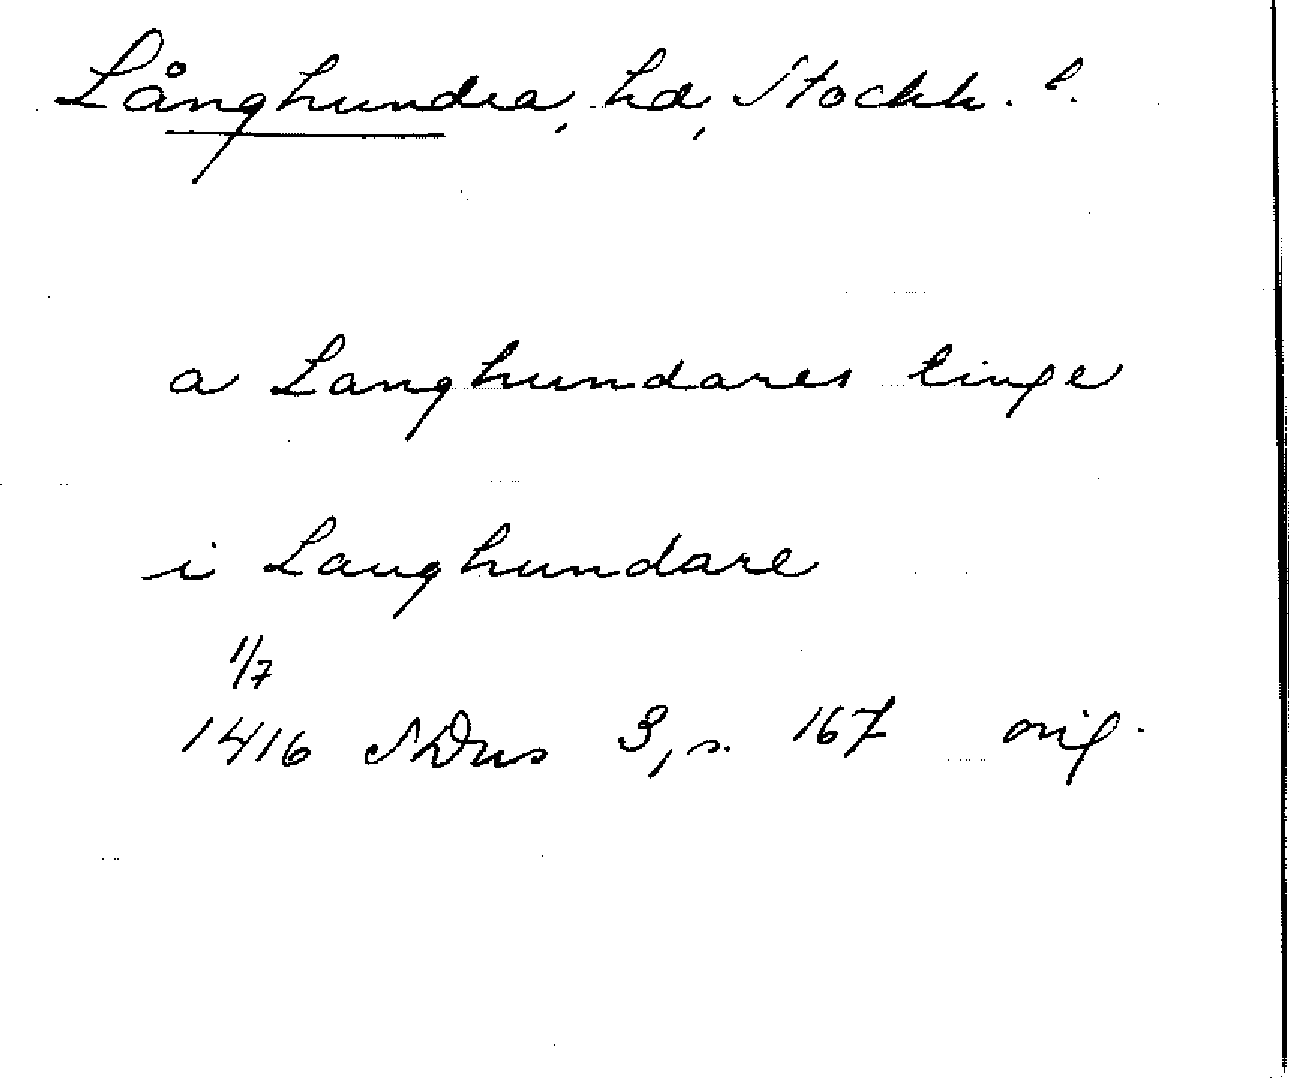 Långhundra, hd, Stockh. l.
a Langhundares tinge
i Langhundare
1/7
1416 SDns 3, s. 167 orig.